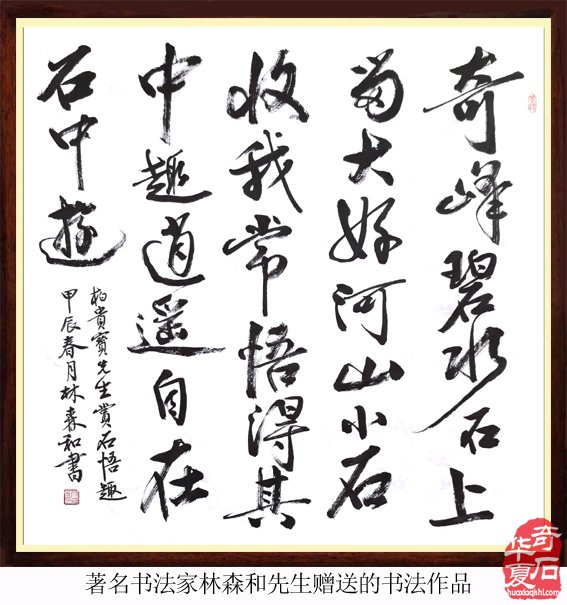 奇峰碧水石上
留大好河山小石
收我常悟得其
中趣逍遥自在
石中遊
柏貴寶先生賞石悟趣
甲辰春月林森和書
著名书法家林森和先生赠送的书法作品
华夏
奇石
huaxiaqishi.com